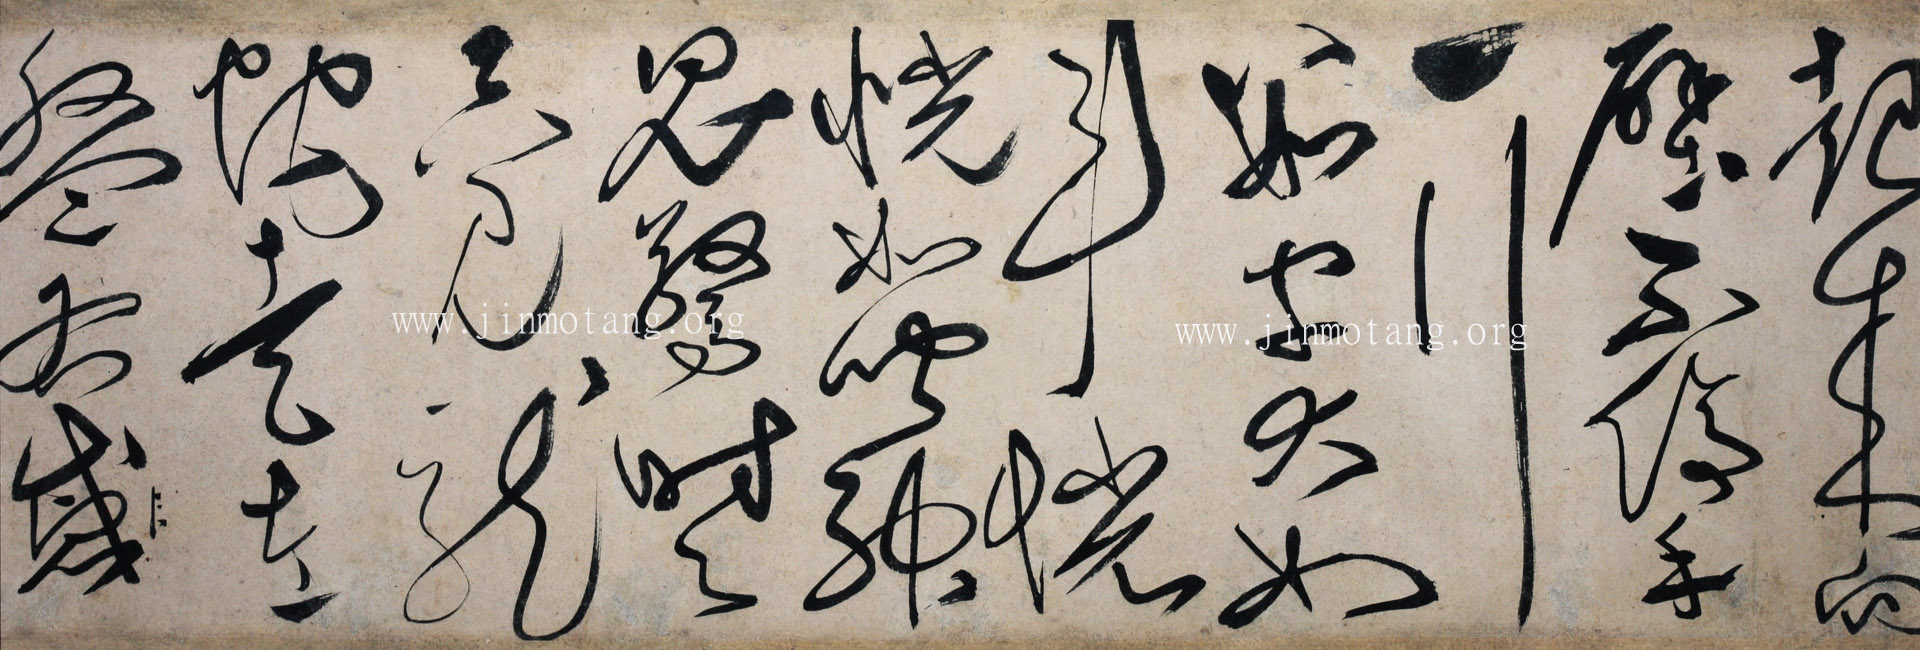 起来向
壁不停手
一行
數字大如
斗恍
恍如聞神
鬼驚時々
只見龍
蛇走左
盤右
www.jinmotang.org
www.jinmotang.org